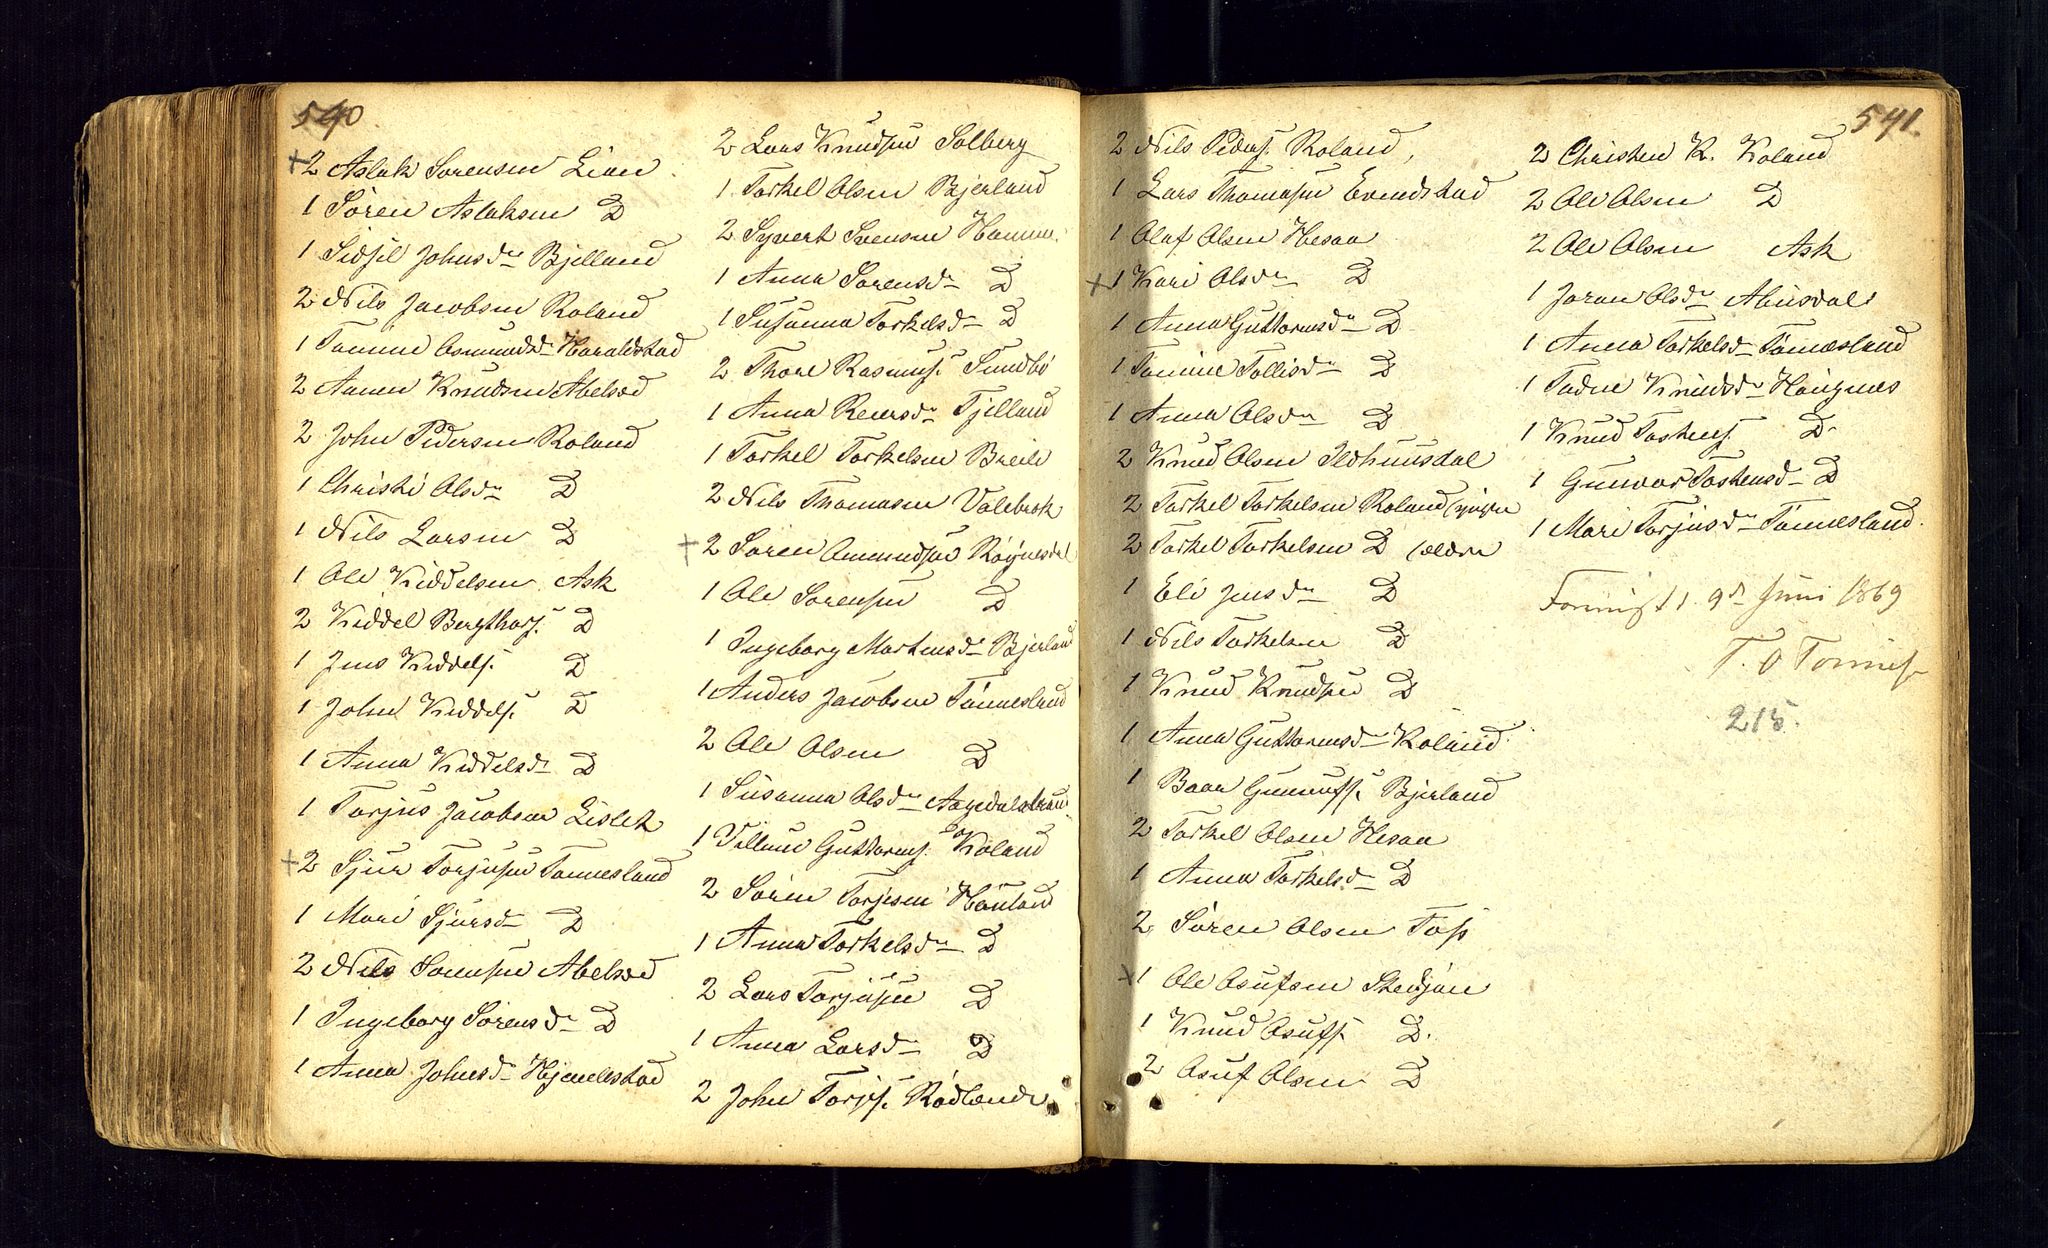 540
+ 2 Aslak Sorensen Lian
1 Sören Aslaksen D
1 Sidsil Johnsdr Bjelland
2 Nils Jacobsen Roland
1 Tomine Asmundsdr Haraldstad
2 Aanen Knudsen Abelsed
2 John Pedersen Roland
1 Christi Olsdr D
1 Nils Larsen D
1 Ole Kiddelsen Ask
2 Kiddel Bergthors. D
1 Jens Kiddels. D
1 John Kiddels. D
1 Anna Kiddelsdr D
1 Torjus Jacobsen Lislek
+ 2 Sjur Torjusen Tonnesland
1 Mari Sjursdr D
2 Nils Abelsed
1 Ingeborg Sorensdr D
1 Anna Johnsdr
2 Lars Knudsen Solberg
1 Torkel Olsen Bjerland
2 Syvert Svensen
1 Anna Sorensdr D
1 Susanna Torkelsdr D
2 Thore Rasmus. Sundbö
1 Anna Reiersdr Fjelland
1 Torkel Torkelsen Breile
2 Nils Thomasen Valebrok
+ 2 Sören Amundsen
1 Ole Sorensen D
1 Ingeborg Martensdr Bjerland
1 Anders Jacobsen Tönnesland
2 Ole Olsen D
1 Susanna Olsdr
1 Guttorms. Koland
2 Sörin Torjesen
1 Anna Torkelsdr D
2 Lars Torjusen D
1 Anna Larsdr D
2 John Torjs. Rödlande
541.
2 Nils Peders. Roland,
1 Lars Thomasen Evendstad
1 Olaf Olsen Hesaa
+ 1 Kari Olsdr D
1 Anna Guttormsdr D
1 Tomine Tollisdr D
1 Anna Olsdr D
2 Knud Olsen Ildhuusdal
2 Torkel Torkelsen Roland (yngre
2 Torkel Torkelsen D (ældre
1 Eli Jensdr D
1 Nils Torkelsen D
1 Knud Knudsen D
1 Anna Guttormsdr Koland
1 Baar Gunnufs. Bjerland
2 Torkel Olsen Hesaa
1 Anna Torkelsdr D
2 Sören Olsen Foss
+ 1 Ole Asufsen
1 Knud Asufs. D.
2 Asuf Olsen D
2 Christen K. Koland
2 Ole Olsen D
2 Ole Olsen Ask
1 Joran Olsdr
1 Anna Torkelsdr Tönnesland
1 Tadne Knudsdr Höignes
1 Knud D.
1 Gunvor D
1 Mari Torjusdr Tönnesland.
9d Juni 1869
T. O
215.